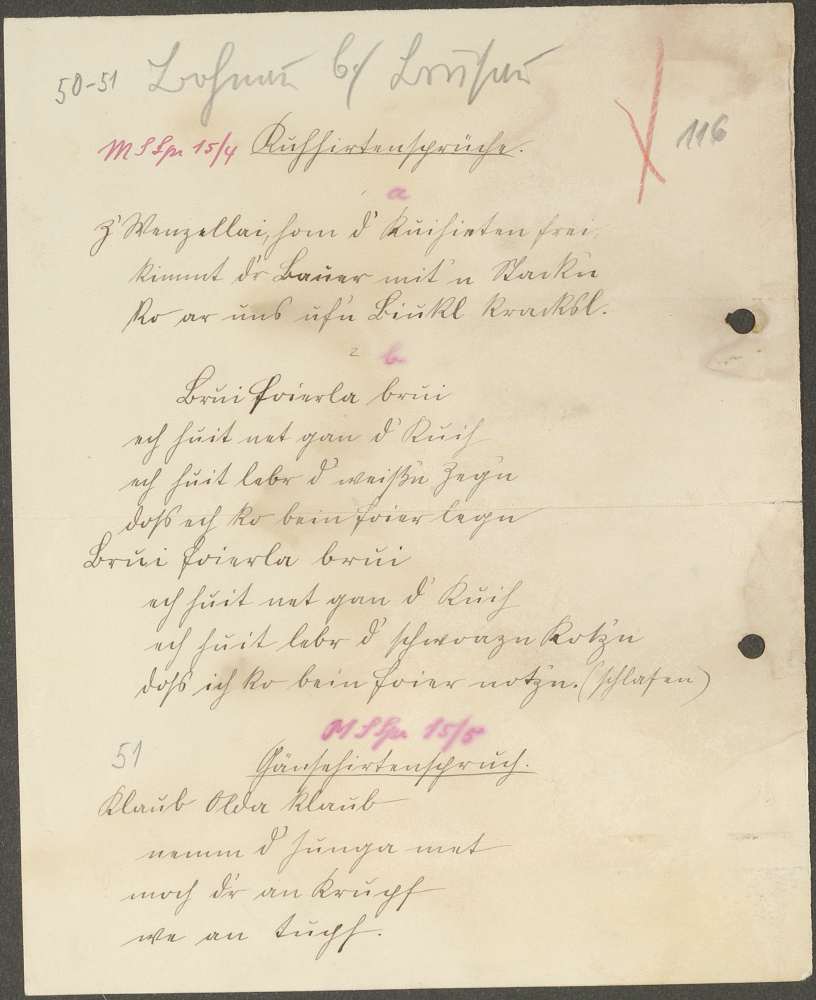 50-51 Lohnau b/ Brüsau
116
M S Spr 15/4 Kuhhirtensprüche.
a
Z' Wenzellai, hom d' Kuihieten frei,
kimmt dr Bauer mit'n Stackn
Ko ar uns ufn Biukl kracksl.
2 b
Brui foierla brui
ech huit net gan d' Kuih
ech huit lebr d' weißn Zegn
doss ech ko bein foier legn
Brui foierla brui
ech huit net gan d' Kuih
ech huit lebr d' schwoazn Kotzn
doss ich ko bein foier notzn. (schlafen)
M S Spr 15/5
51
Gänsehirtenspruch.
Klaub Olda klaub
nemm d' Junga met
moch dr an Krupf
we an Tupf.